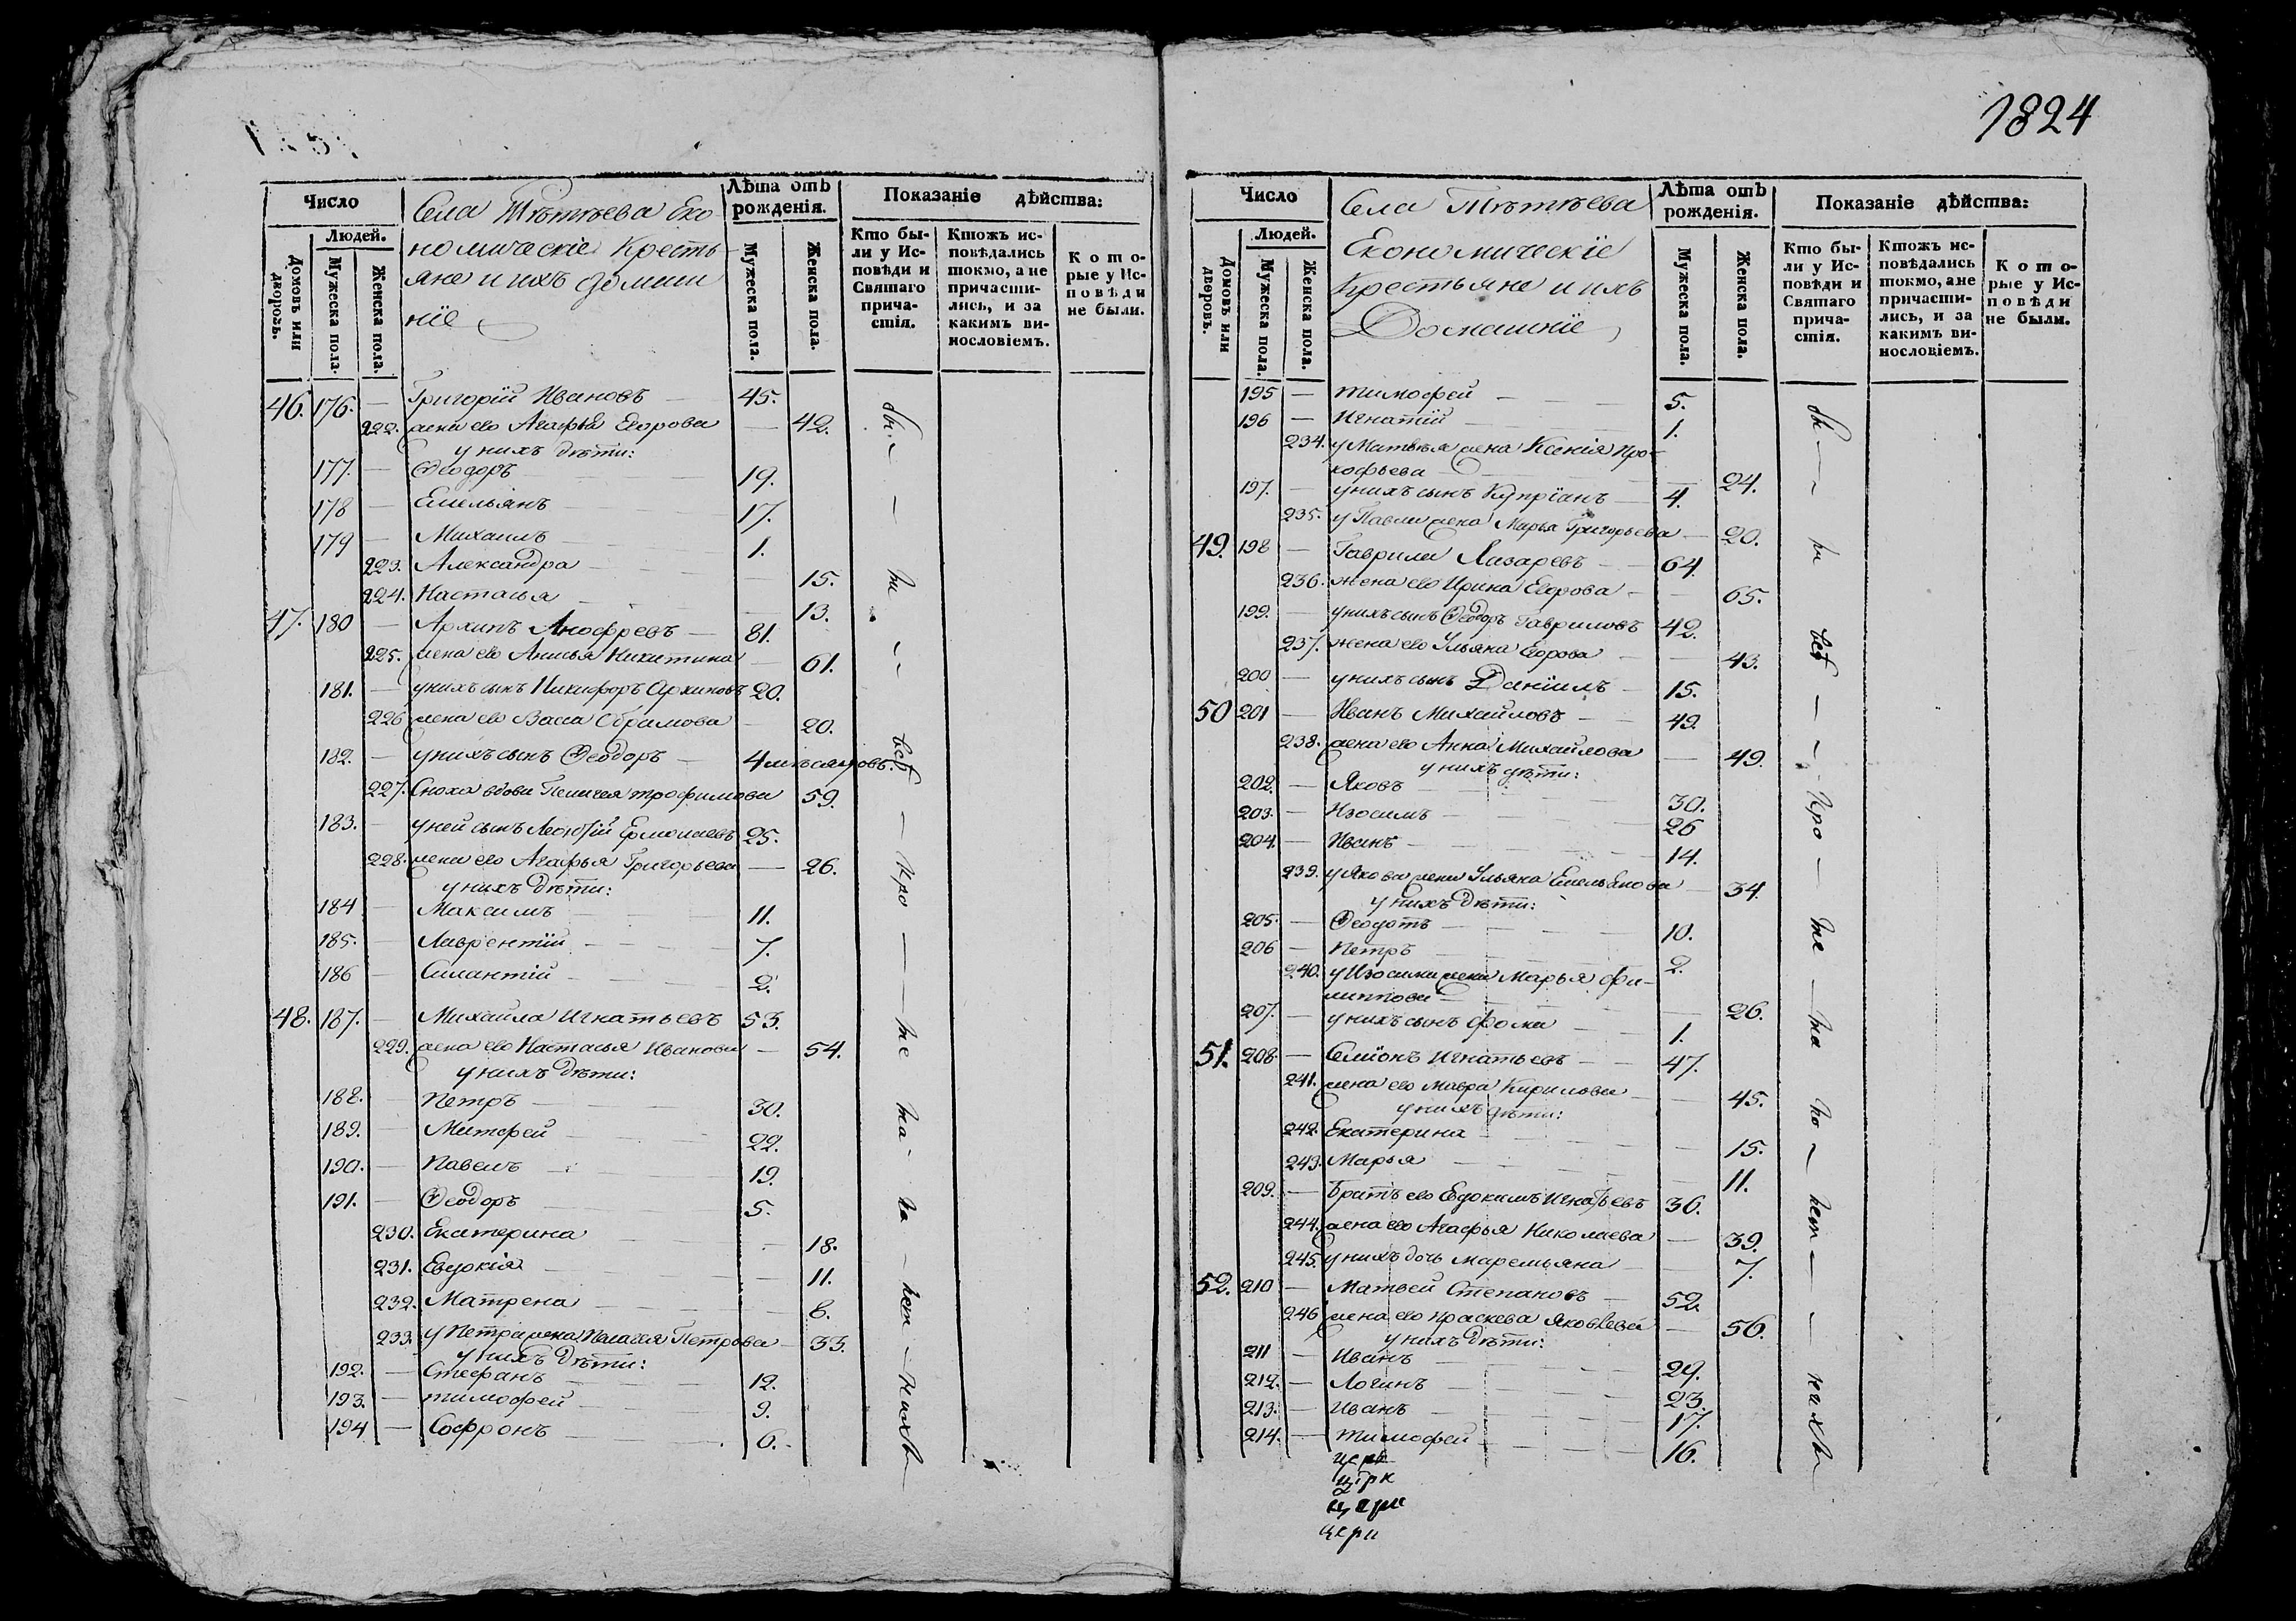 1824
Число
Села Тѣтѣева Еко-
номическіе Кресть-
яне и ихъ домаш
ніе
Лѣта отъ рожденія.
Показаніе дѣйства:
Людей.
Домовъ или дворовъ.
Мужеска пола.
Женска пола.
Мужеска пола.
Женска пола.
Кто бы-
ли у Ис-
повѣди и
Святаго
прича-
стія.
Ктожъ ис-
повѣдались
токмо, а не
причасти-
лись, и за
какимъ ви-
нословіемъ.
Кото-
рые у Ис-
повѣди
не были.
46. 176. — Григорій Ивановъ — 45.
222. жена его Агафья Егорова — 42.
у нихъ дѣти:
177. — Ѳеодоръ 19.
178 — Емельянъ 17.
179 — Михаилъ 1.
223. Александра — 15.
224. Настасья — 13.
47. 180 — Архипъ Анофревъ — 81.
225. жена его Анисья Никитина — 61.
181. — у нихъ сынъ Никифоръ Архиповъ 20.
226 жена его Васса Абрамова — 20.
182. — у нихъ сынъ Ѳеодоръ — 4 мѣсяцовъ.
227. Сноха вдова Пелагея трофимова 59.
183. — у ней сынъ Леонтій Ермолаевъ 25.
228. жена его Агафья Григорьева — 26.
у нихъ дѣти:
184 — Максимъ 11.
185. — Лаврентій 7.
186 — Силантій 2.
48. 187. — Михайла Игнатьевъ 53.
229. жена его Настасья Иванова — 54.
у нихъ дѣти:
188. — Петръ — 30.
189. — Матфей 22.
190. — Павелъ 19.
191. — Ѳеодоръ 5.
230. Екатерина — 18.
231. Евдокія — 11.
232. Матрена — 8.
233. у Петра жена Пелагея Петрова — 33.
у нихъ дѣти:
192. — Стефанъ 12.
193. — тимофей 9.
194 — Софронъ 6.
Число
Села Тѣтѣева
Економическіе
Крестьяне и ихъ
Домашніе
Лѣта отъ рожденія.
Показаніе дѣйства:
Людей.
Домовъ или дворовъ.
Мужеска пола.
Женска пола.
Мужеска пола.
Женска пола.
Кто бы-
ли у Ис-
повѣди и
Святаго
прича-
стія.
Ктожъ ис-
повѣдались
токмо, а не
причасти-
лись, и за
какимъ ви-
нословіемъ.
Кото-
рые у Ис-
повѣди
не были.
195 — тимофей — 5.
196 — Игнатій 1.
234. у Матвѣя жена Ксенія Про-
кофьева — 24.
197. — у нихъ сынъ Купріанъ — 4.
235. у Павла жена Марья Григорьева — 20.
49. 198 — Гаврила Лазаревъ — 64.
236. жена его Ирина Егорова — 65.
199. — у нихъ сынъ Ѳеодоръ Гавриловъ 42.
237. жена его Ульяна Егорова — 43.
200 — у нихъ сынъ Даніилъ — 15.
50 201 — Иванъ Михайловъ — 49.
238. жена его Анна Михайлова — 49.
у нихъ дѣти:
202. — Яковъ 30.
203. — Изосимъ 26
204. — Иванъ 14.
239. у Якова жена Ульяна Емельянова — 34.
у нихъ дѣти:
205. — Ѳеодотъ 10.
206 — Петръ 2.
240. у Изосима жена Марья Фи-
липпова — 26.
207. — у нихъ сынъ Фома 1.
51. 208. — Семіонъ Игнатьевъ — 47.
241. жена его Мавра Кирилова — 45.
у нихъ дѣти:
242. Екатерина — 15.
243. Марья — 11.
209. — Братъ его Евдокимъ Игнатьевъ 36.
244. жена его Агафья Николаева — 39.
245. у нихъ дочь Маремьяна — 7.
52. 210 — Матвей Степановъ — 52.
246 жена его Праскева Яковлева — 56.
у нихъ дѣти:
211 — Иванъ 29.
212. — Логинъ 23.
213. — Иванъ 17.
214. — тимофей 16.